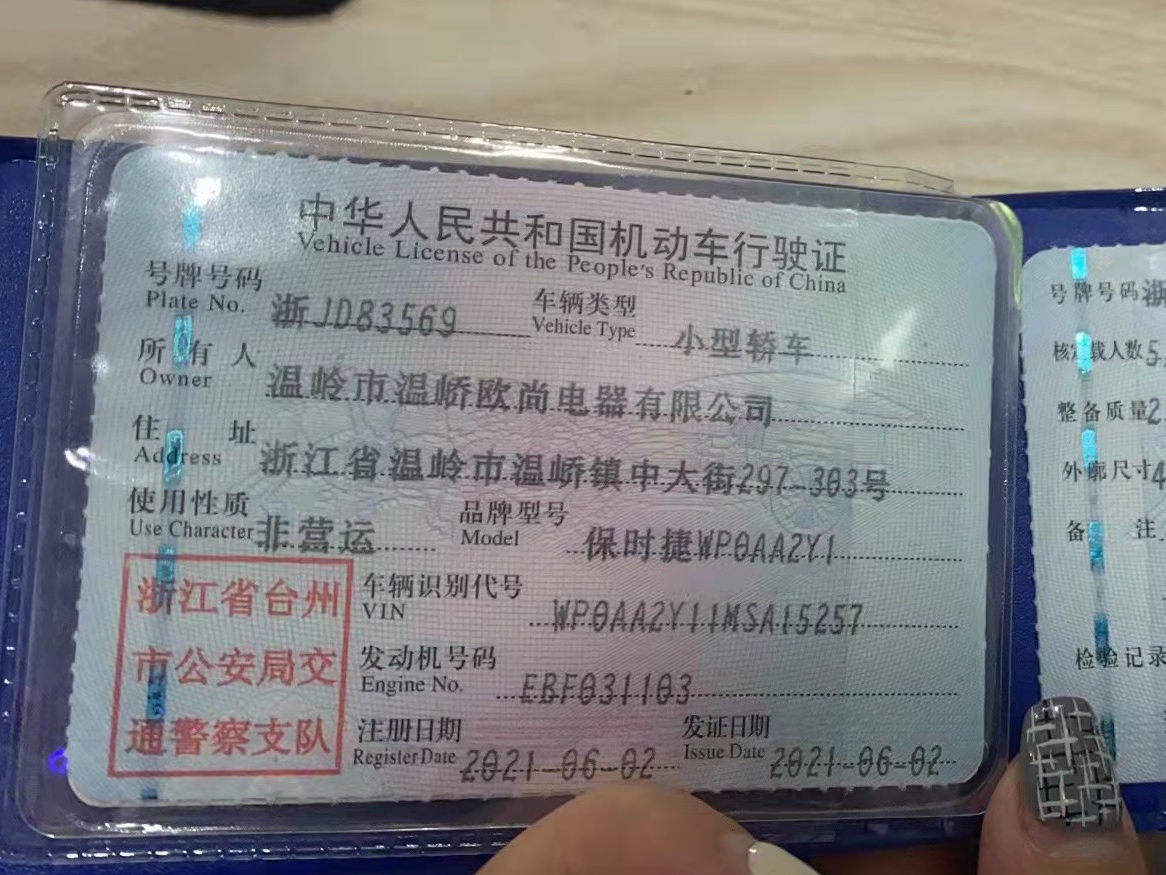 中华人民共和国机动车行驶证
Vehicle License of the People's Republic of China
号牌号码 浙JD83569 车辆类型 小型轿车
Plate No. Vehicle Type
所有人 温岭市温峤欧尚电器有限公司
Owner
住址 浙江省温岭市温峤镇中大街297-303号
Address
使用性质 非营运 品牌型号 保时捷WP0AA2Y1
Use Character Model
车辆识别代号 WP0AA2Y11MSA15257
VIN
发动机号码 EBF031103
Engine No.
注册日期 2021-06-02 发证日期 2021-06-02
Register Date Issue Date
浙江省台州
市公安局交
通警察支队
号牌号码 浙
核定载人数 5
整备质量 2
外廓尺寸 4
备注
检验记录